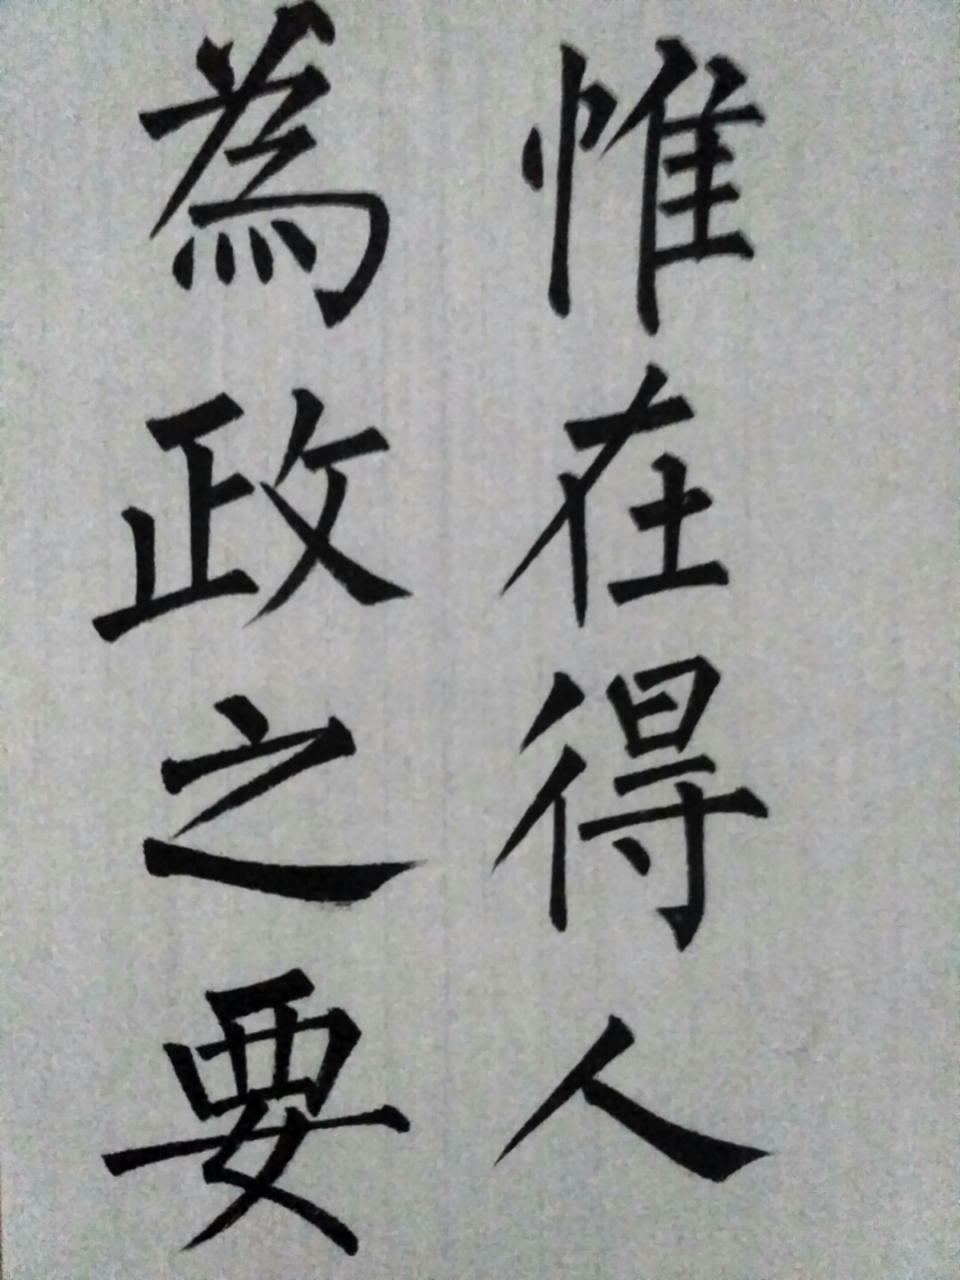 惟在得人
為政之要